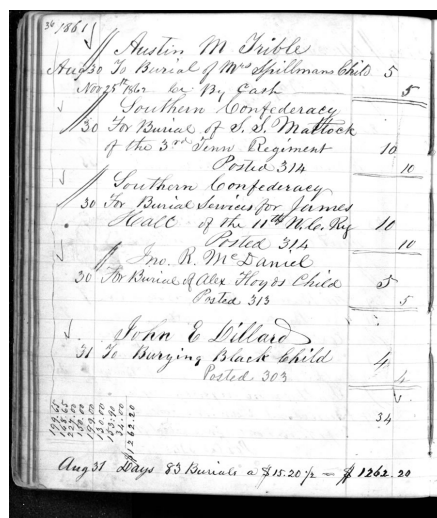 36 1861
Austin M Trible
Aug 30 To Burial of Mrs Spillmans Child 5
Nov 25th 1862 By Cash 5
Southern Confederacy
30 For Burial of S. S. Mattock
of the 3rd Tenn Regiment 10
Posted 314 10
Southern Confederacy
30 For Burial Services for James
Hall of the 11th N.C. Reg 10
Posted 314 10
Jno. R. McDaniel
30 For Burial of Alex Floyds Child 5
Posted 313 5
John E Dillard
31 To Burying Black Child 4
Posted 303 4
34
199.65
168.65
227.00
150.00
199.00
130.00
153.90
34.00
$1262.20
Aug 31 Days 83 Burials a $15.20 1/2 = $ 1262.20